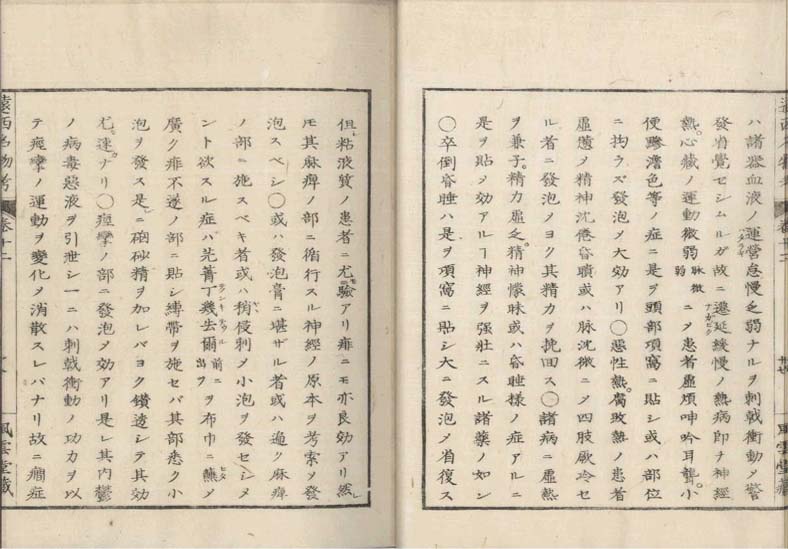 ハ諸器血液ノ運営怠慢乏弱ナルヲ刺戟衝動メ警
發省覺セシムルガ故ニ遷延緩慢ノ熱病即チ神經
熱。心臓ノ運動微弱脉微弱ニメ患者虚煩呻吟耳聾。小
便黲澹色等ノ症ニ是ヲ頭部項窩ニ貼シ或ハ部位
ニ拘ラズ發泡メ大効アリ〇悪性熱。腐敗熱ノ患者
虚憊メ精神沈倦昏瞶或ハ脉沈微ニメ四肢厥冷セ
ル者ニ發泡メヨク其精力ヲ挽回ス〇諸病ニ虚熱
ヲ兼子。精力虚乏。精神懞昧或ハ昏睡様ノ症アルニ
是ヲ貼メ効アルヿ神經ヲ強壮ニスル諸薬ノ如シ
〇卒倒昏睡ハ是ヲ項窩ニ貼シ大ニ發泡メ省復ス
但シ粘液質ノ患者ニ尤モ驗アリ痱ニモ亦良効アリ然レ
モ其麻痺ノ部ニ循行スル神經ノ原本ヲ考索メ發
泡スベシ〇或ハ發泡膏ニ堪ザル者或ハ遍ク麻痺
ノ部ニ施スベキ者或ハ稍侵刺メ小泡ヲ發セシメ
ント欲スル症ハ芫菁丁幾去爾前ニ出ヲ布巾ニ蘸メ
廣ク痱不遂ノ部ニ貼シ縛帯ヲ施セバ其部悉ク小
泡ヲ發ス是レニ磠砂精ヲ加レバヨク鑚透シテ其効
尤モ速ナリ〇痙攣ノ部ニ發泡メ効アリ是レ其内鬱
ノ病毒惡液ヲ引泄シ一ニハ刺戟衝動ノ功力ヲ以
テ痙攣ノ運動ヲ變化メ消散スレバナリ故ニ癇症
遠西名物考
巻十二
風雲堂蔵